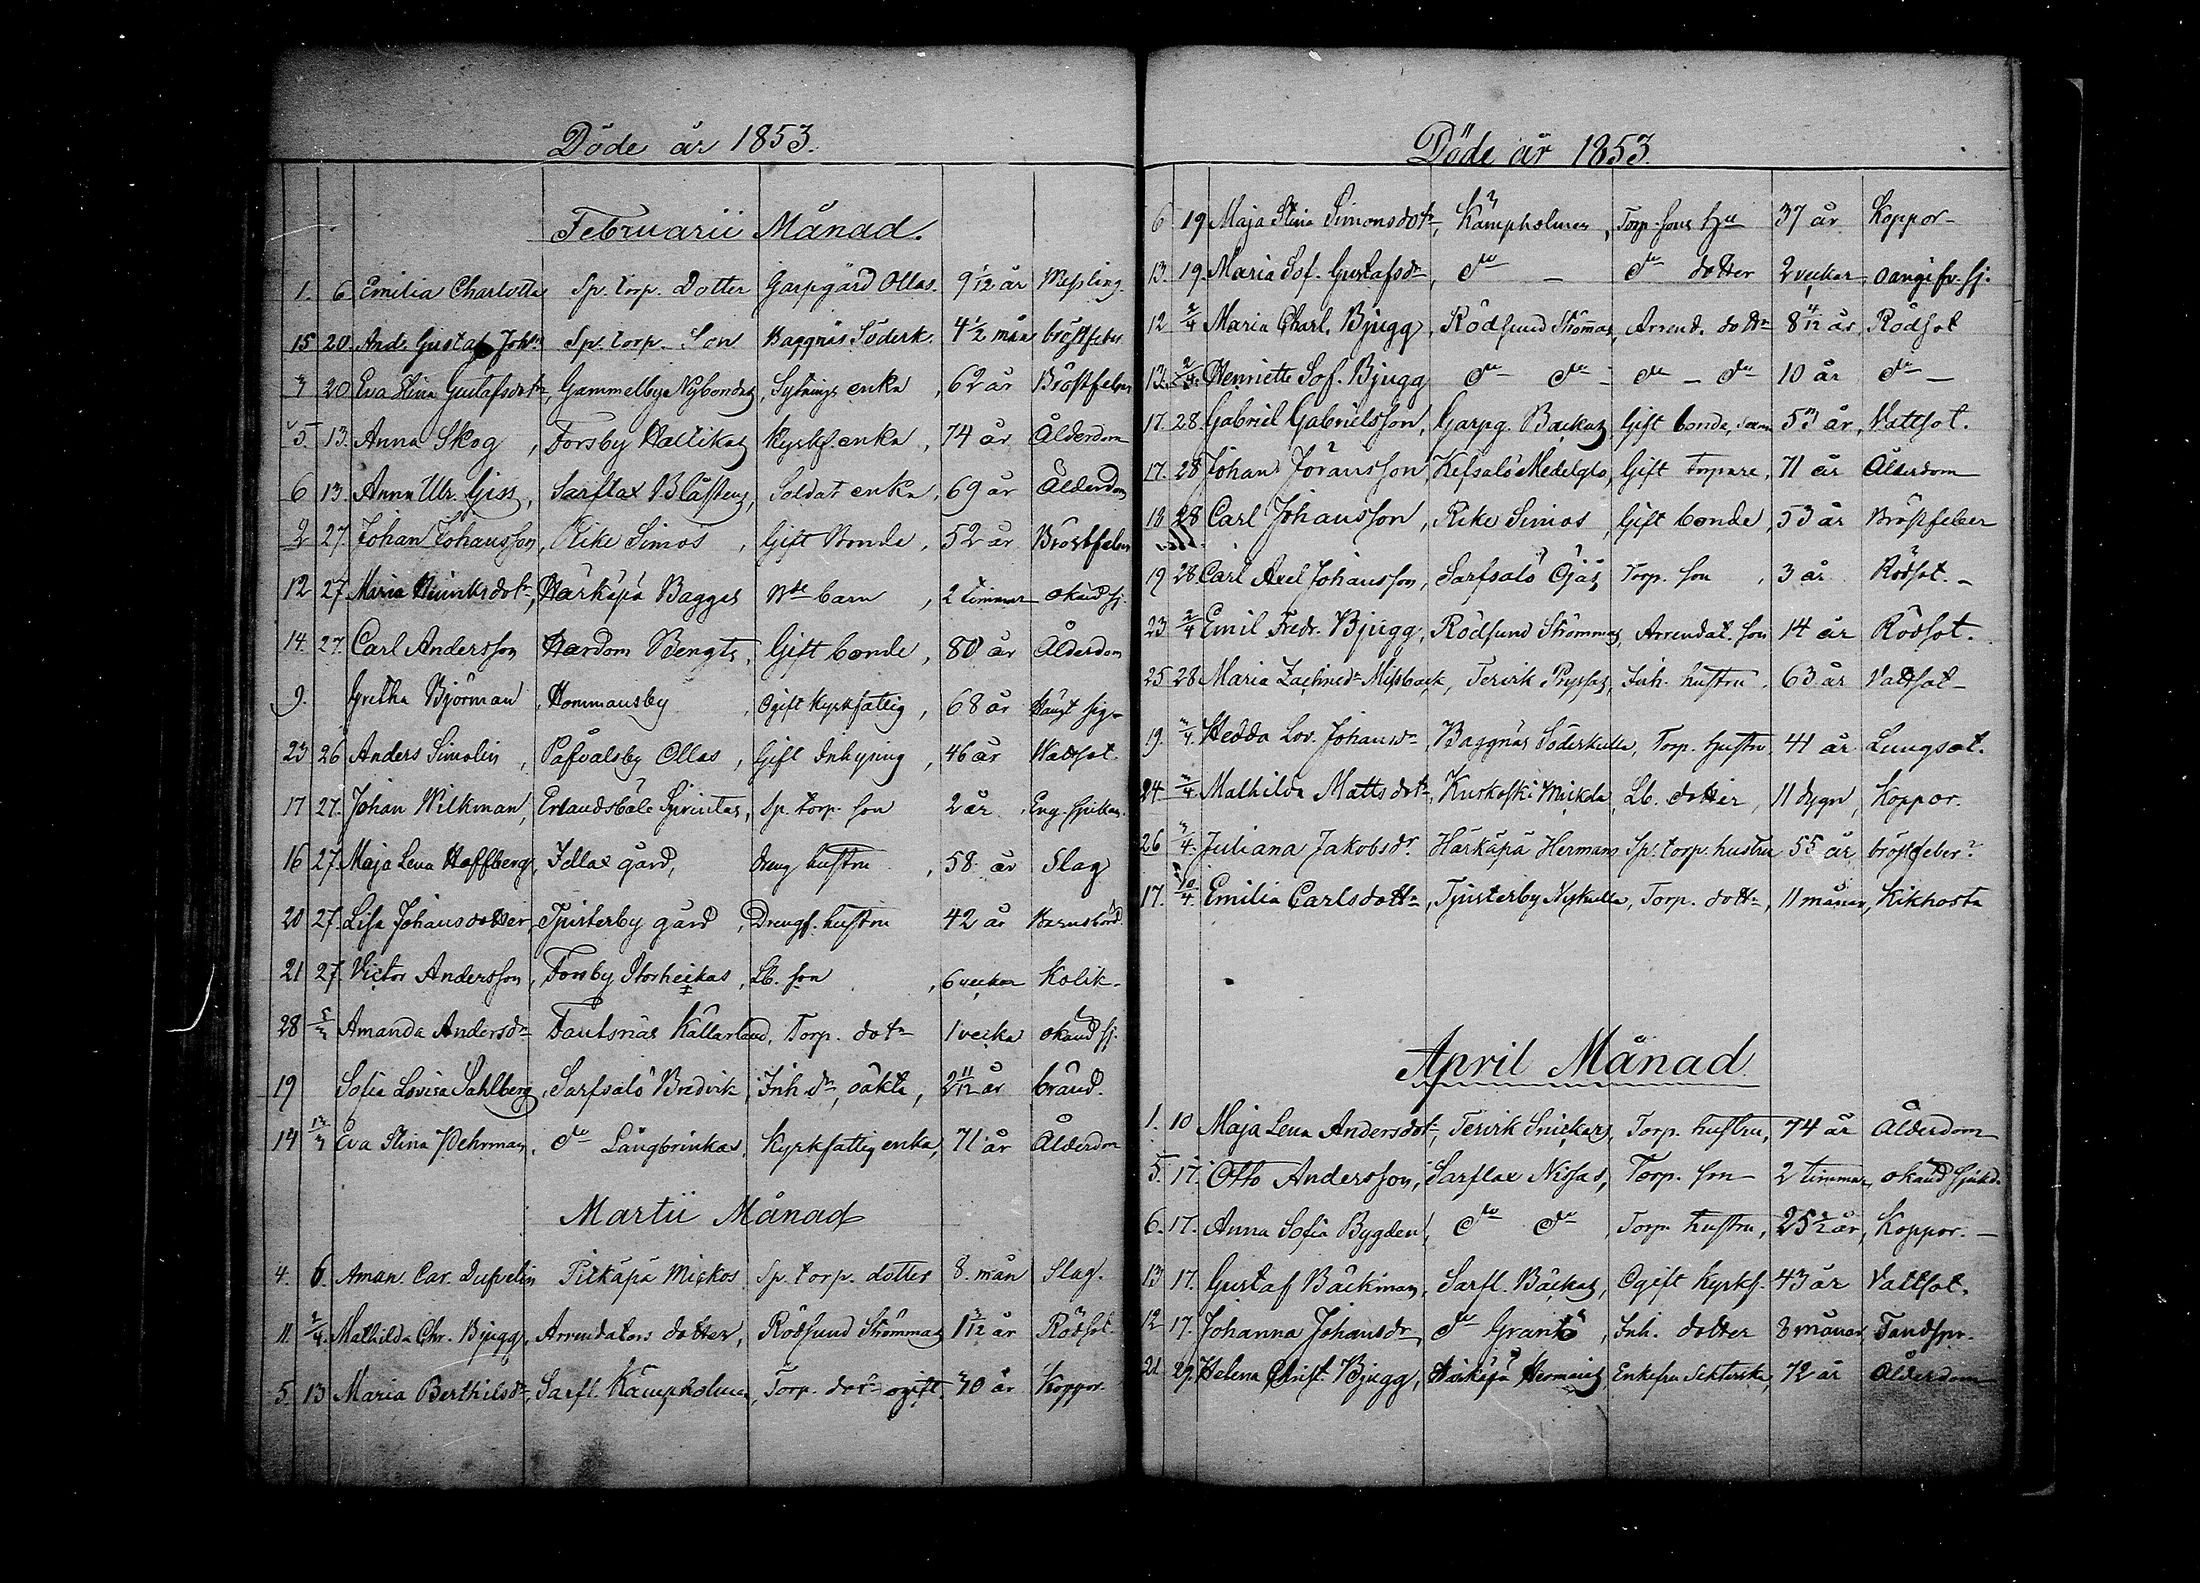 Döde år 1853.
Februarii Månad.
1. 6 Emilia Charlotta Sp. torp. Dotter Garpgård Ollas. 9 1/12 år Messling.
15 20. And. Gustaf Joh:n Sp. torp. Son Baggnäs Söderk. 4 1/2 mån bröstfeber
7 20 Eva Stina Gustafsdotr, Gammelby Nybondas, Sytnings enka, 62 år Bröstfeber
5. 13. Anna Skog, Forsby Hallikas Kyrkf. enka, 74 år Ålderdom
6 13. Anna Ulr. Giss, Sarflax Blåstens, Soldat enka, 69 år Ålderdom
2 27. Johan Johansson, Rike Simos, Gift Bonde, 52 år Bröstfeber
12 27. Maria Hinriksdotr, Härkäpä Bagges Nde barn, 2 timmar okänd sj.
14. 27. Carl Andersson Hardom Bengts, Gift bonde, 80 år Ålderdom
9. Gretha Björman, Hommansby, Ogift kyrkfattig, 68 år Hängt sig
23 26 Anders Simolin, Påfvalsby Ollas, Gift Inhysing, 46 år Vattsot.
17 27. Johan Wilkman, Erlandsböle Sp. torp. son 2 år. Eng. sjukan.
16 27. Maja Lena Hoffberg, Isllax gård, dreng hustru, 58 år Slag
20 27. Lisa Johansdotter, Tjusterby gård, Drengs. hustru 42 år Barnsbörd.
21 27. Victor Andersson, Forsby Storheikas, Lb. son, 6 veckor Kolik.
28 5/3 Amanda Andersdr Fantsnäs Källarland, Torp. dotr 1 vecka okänd sj.
19 Sofia Lovisa Sahlberg, Sarfsalö Bredvik, Inh. dr, oäkta, 2 11/12 år bränd.
14 13/3 Eva Stina Pehrman, do Långbrinkas, Kyrkfattig enka, 71 år Ålderdom
Martii Månad
4. 6. Aman. Car. Pitkäpä Mickos Sp. torp. dotter 8 mån Slag.
11. 2/4. Mathilda Chr. Bjugg, Arrendators dotter, Rödsund Strömmas 1 3/12 år Rödsot.
5. 13 Maria Berthilsdr, Sarfl. Kämpholmen, Torp. dotr ogift. 40 år Koppor.
Döde år 1853.
6 19 Maja Stina Simonsdotr, Kämpholmen, Torp. sons Hu 37 år Koppor
13. 19. Maria Sof. Gustafsdr, do do dotter 2 veckor, oangifv. sj.
12 2/4 Maria Charl. Bjugg, Rödsund Strömmas, Arrend. dottr 8 11/12 år Rödsot
13. 2/4. Henriette Sof. Bjugg do do do do 10 år do
17. 28. Gabriel Gabrielsson, Garpg. Backas Gift bonde, 53 år, Vattsot.
17. 28 Johan Jöransson, Kejsalö Gift Torpare, 71 år Ålderdom
18 28 Carl Johansson, Rike Simos, Gift bonde, 53 år Bröstfeber
19 28 Carl Axel Johansson, Sarfsalö Öjäs Torp. son, 3 år Rödsot.
23 2/4 Emil Fredr. Bjugg, Rödsund Strömmas, Arrendat. son 14 år Rödsot.
25 28 Maria Zachrisdr Missback, Terirk Pryssas, Inh. hustru. 63 år Vattsot
19. 3/4. Hedda Lov. Johansdr Baggnäs Söderkulla, Torp. hustru 41 år Lungsot.
24 3/4 Mathilda Mattsdotr, Kuskoski Mickla, Lb. dotter, 11 dygn, Koppor.
26 3/4. Juliana Jakobsdr. Härkäpä Hermans Sp. torp. hustru 55 år bröstfeber?
17. 10/4. Emilia Carlsdottr, Tjusterby Nykulla, Torp. dottr, 11 månar, Kikhosta
April Månad
1. 10 Maja Lena Andersdotr, Terirk Snickars, Torp. hustru, 74 år Ålderdom
5. 17. Otto Andersson, Sarflax Nissas, Torp. son 2 timmar okänd sjukd.
6. 17. Anna Sofia Bygden, do do, Torp. hustru, 25 1/2 år, Koppor.
13 17. Gustaf Bäckman, Sarfl. Bäckas, Ogift Kyrkf. 43 år Vattsot.
12 17. Johanna Johansdr, do Granbö, Inh. dotter 8 månar, Tandspr.
21. 29. Helena Christ. Bjugg, Härkäpä Hermans Enkefru 72 år Ålderdom